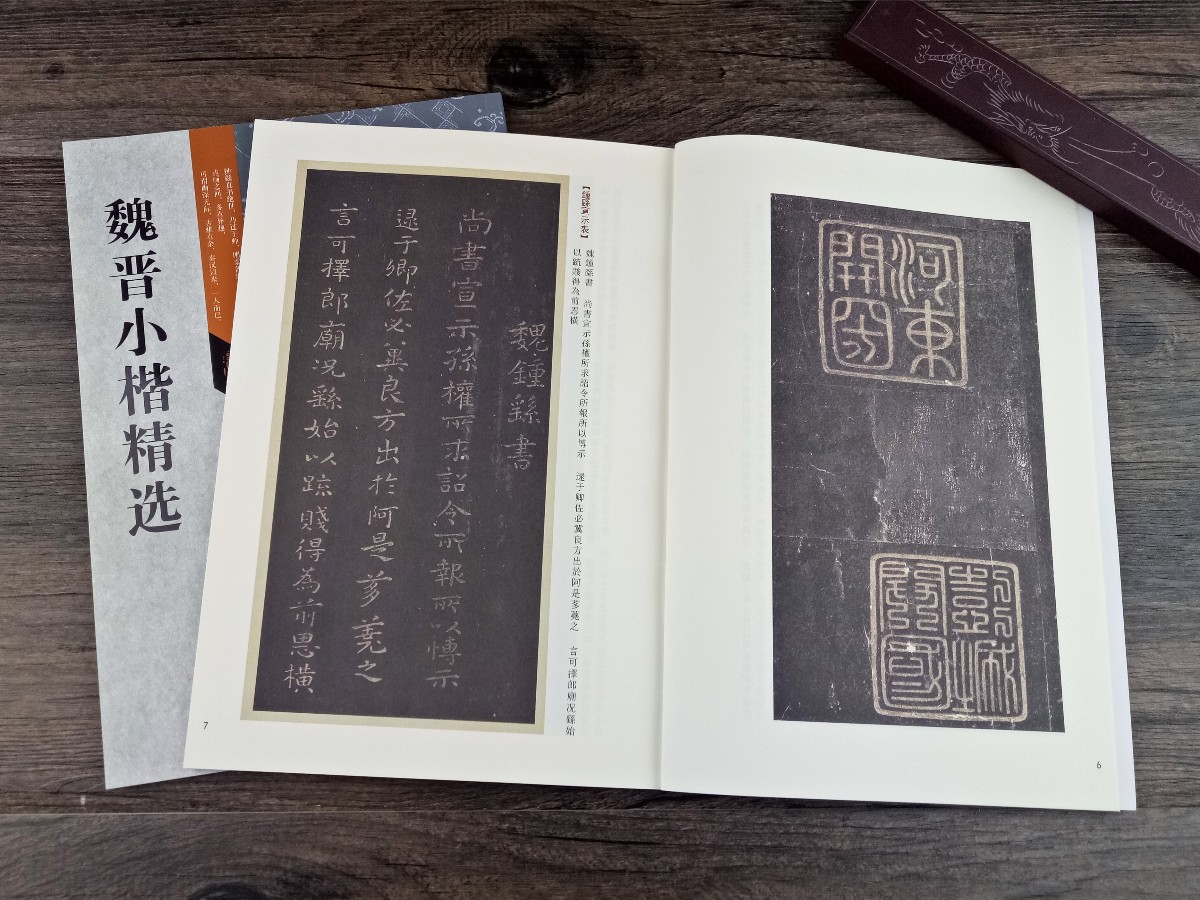 魏晋小楷精选
河東
開國
魏鍾繇書
尚書宣示孫權所求詔令所報所以博示
逮于卿佐必冀良方出於阿是芻蕘之
言可擇郎廟況繇始以疏賤得為前恩橫
【鍾繇宣示表】
魏鍾繇書 尚書宣示孫權所求詔令所報所以博示 逮于卿佐必冀良方出於阿是芻蕘之 言可擇郎廟況繇始
以疏賤得為前恩橫
7
6